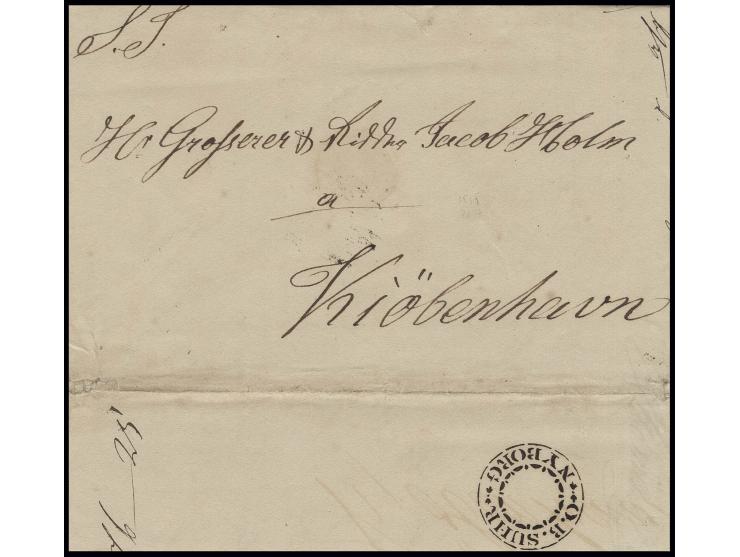 S. T.
Hr Grosserer & Ridder Jacob Holm
a
Kiöbenhavn
O.B. SUHR NYBORG